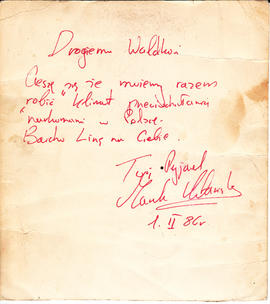 Drogiemu Waldkowi
Cieszę się że możemy razem
"robić" klimat
w Polsce.
Bardzo Liczę na Ciebie.
Twój Przyjaciel
Marek
1. II 86r